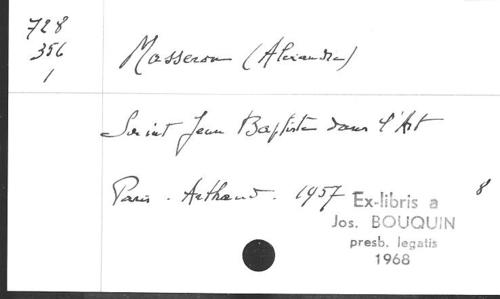 728
356
1
Masseron (Alexandre)
Saint Jean Baptiste dans l'Art
Paris. Arthaud. 1957 8
Ex-libris a
Jos. BOUQUIN
presb. legatis
1968